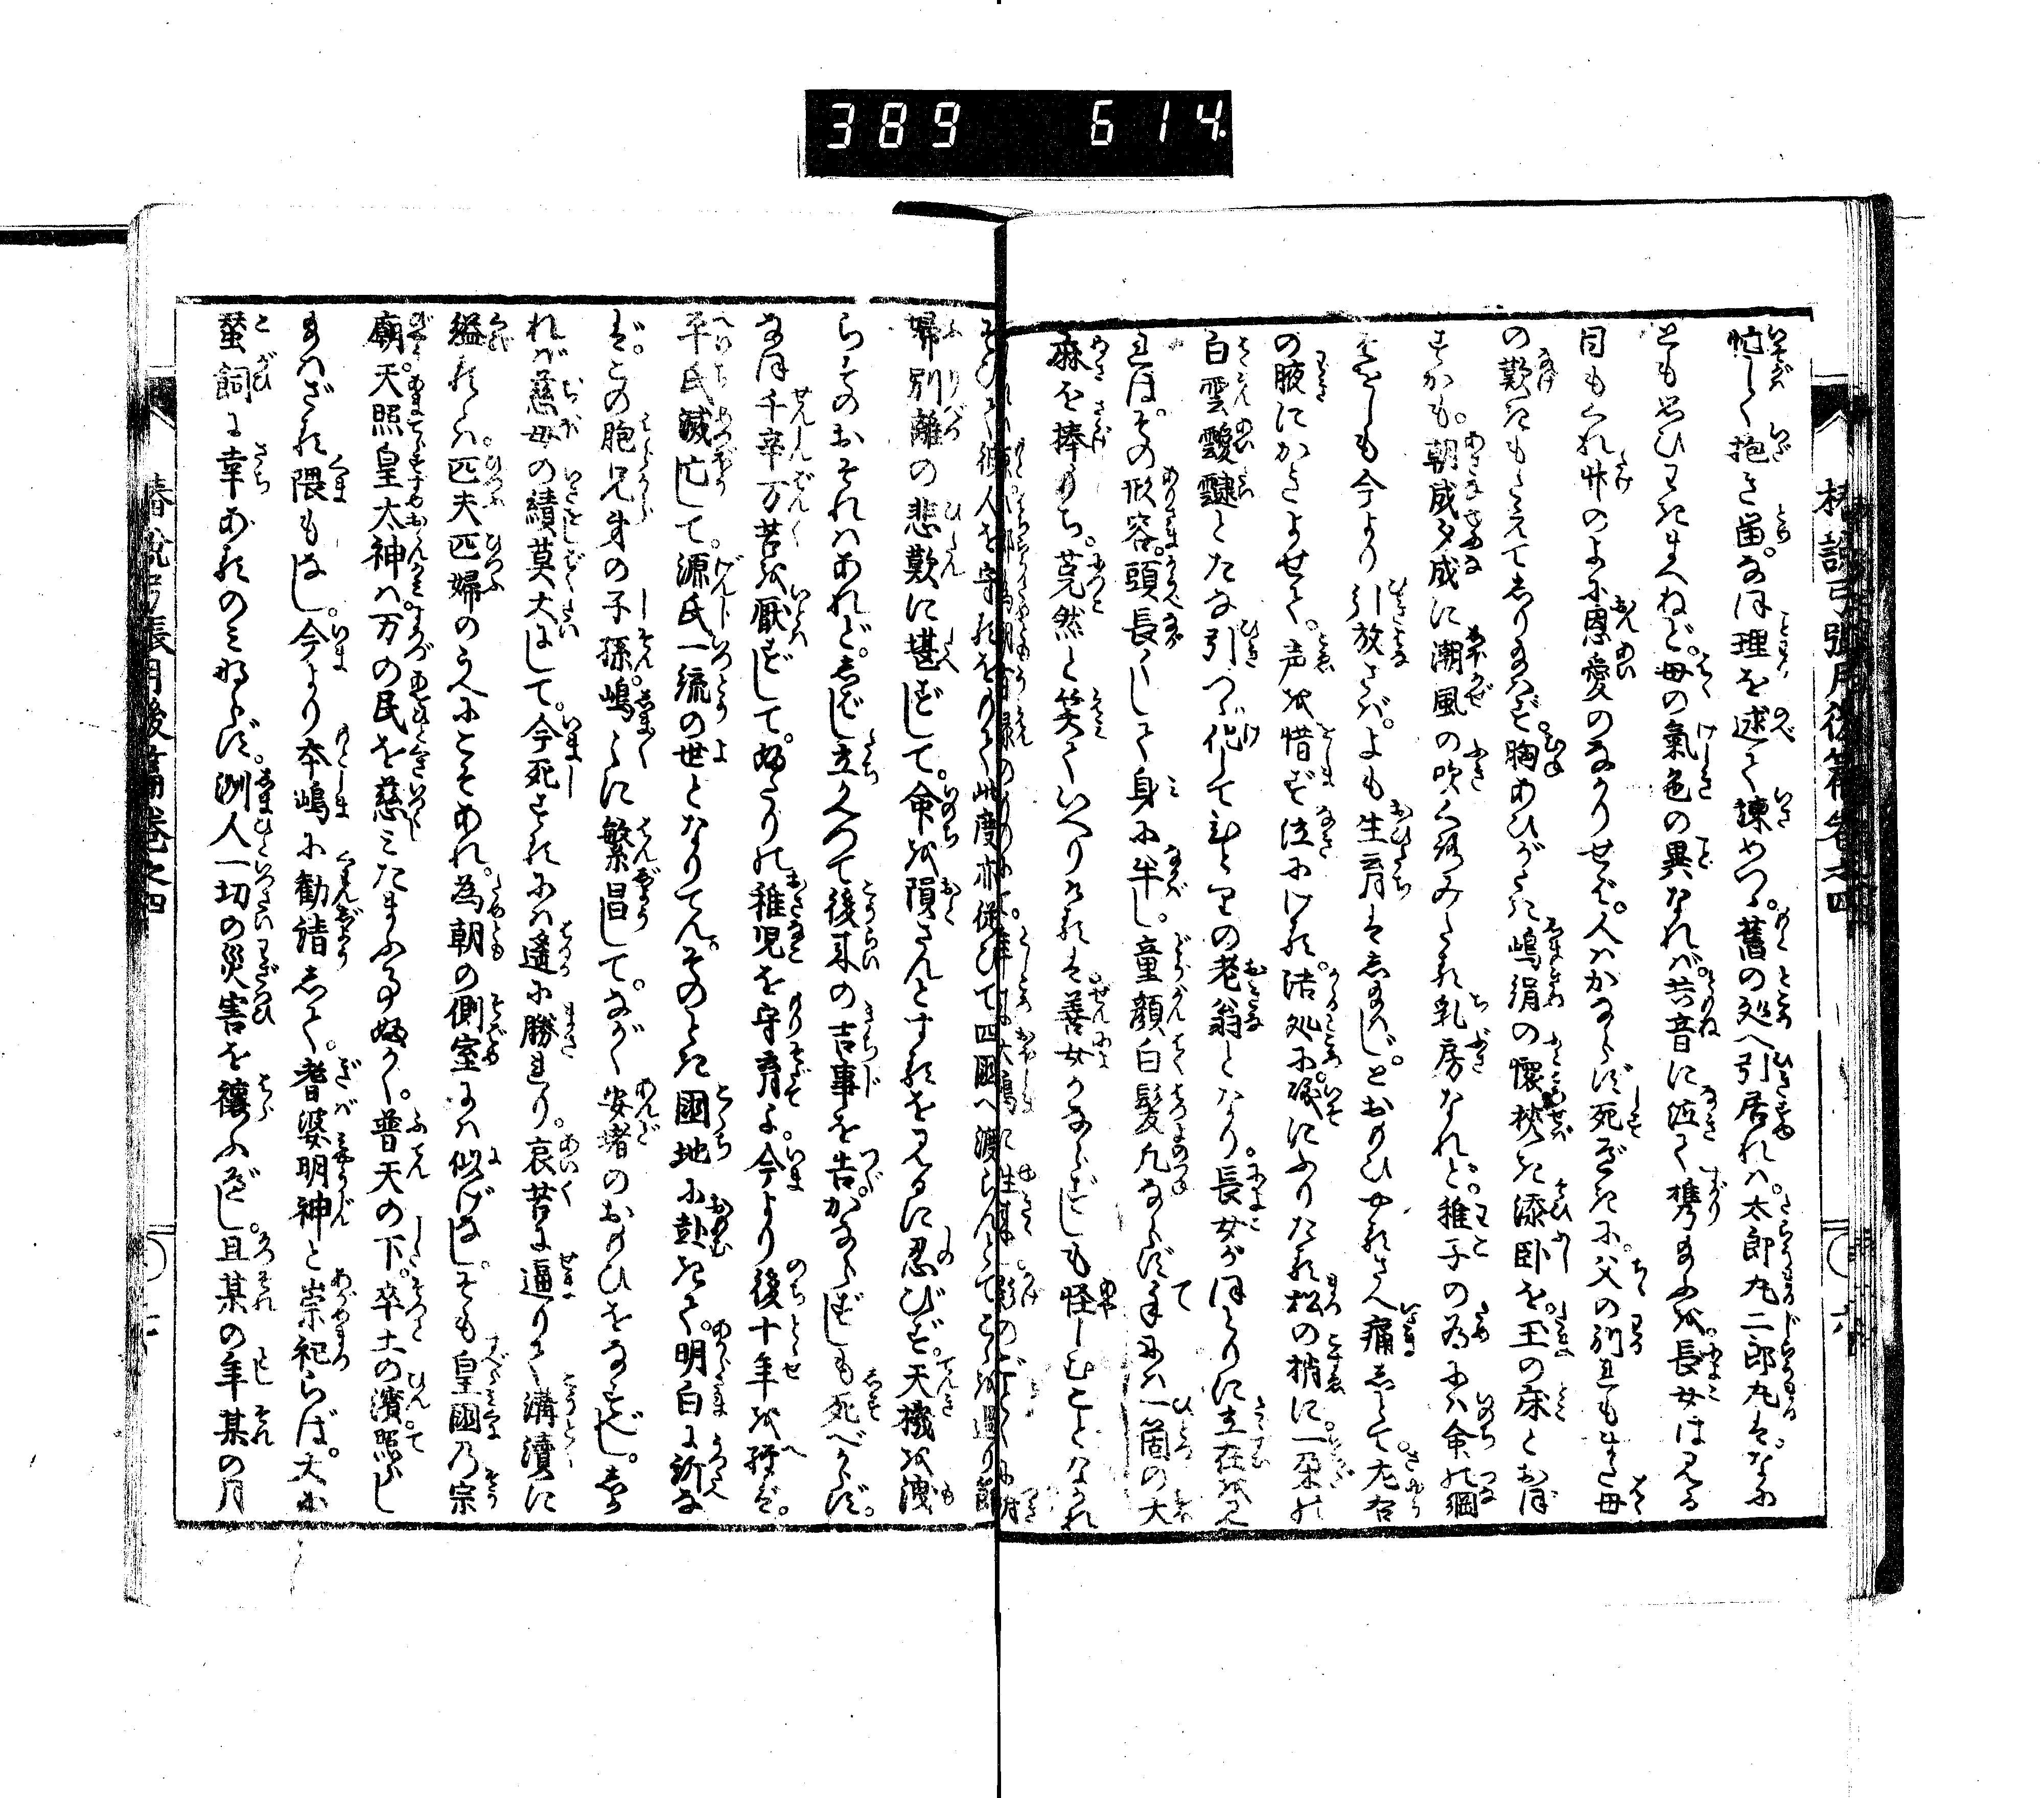 389 614
椿説弓張月後篇巻之四
忙しく抱き留。なほ理を述て諫めつゝ。舊の処へ引居れバ。太郎丸二郎丸は。なに
とも思ひわきまへねど。母の氣色の異なれバ。共音に泣て携るを。長女は見る
目もくれ竹のよに恩愛のなかりせば。人ハかならず死ざるに。父の別れも生る母
の歎きもたえてしり給はず。胸あひがたき嶋絹の懐狭き添臥を。玉の床とおぼ
すかも。朝戚夕戚に潮風の吹くるみたる乳房なれど。稚子の為にハ命の綱
を。しも今より引放さバ。よも生育はし給はじ。とおもひやるさへ痛しくて。左右
の腋にかきよせて。声を惜ず泣にける。浩処に磯にふりたる松の梢に。一朶の
白雲靉靆とたな引つゝ。化してひとりの老翁となり。長女がほとりに立在を見
れば。その形容。頭長くして身に半し。童顔白髪凡ならず。手にハ一箇の大
麻を捧もち。莞然と笑ていへりけるは。善女かならずしも怪しむことなかれ
そひて彼人を守るをもて此度亦従ひて四國へ渡らんとてこゝを過り
婦別離の悲歎に堪ずして。命を隕さんとするを見るに忍びず。天機を洩
らすのおそれハあれど。しばし立かへつて後来の吉事を告。かならずしも死べからず。
なほ千辛万苦を厭ずして。ふたりの稚児を守育よ。今より後十年を経ば。
平氏滅亡して。源氏一流の世となりてん。そのとき國地に赴きて。明白に訴な
ば。この胞兄弟の子孫嶋〳〵に繁昌して。ながく安堵のおもひをなすべし。しか
れバ慈母の績莫大にして。今死するにハ遙に勝れり。哀苦に逼りて溝瀆に
縊るゝハ。匹夫匹婦のうへにこそあれ。為朝の側室にハ似げなし。そも皇國乃宗
廟。天照皇太神ハ。万の民を慈ミたまふ事ふかく。普天の下。卒土の濱照らし
給ハざる隈もなし。今より本嶋に勧請して。耆婆明神と崇祀らば。大に
蠶飼に幸あるのミならず。洲人一切の災害を禳ふべし。且某の年某の月
椿説弓張月後篇巻之四